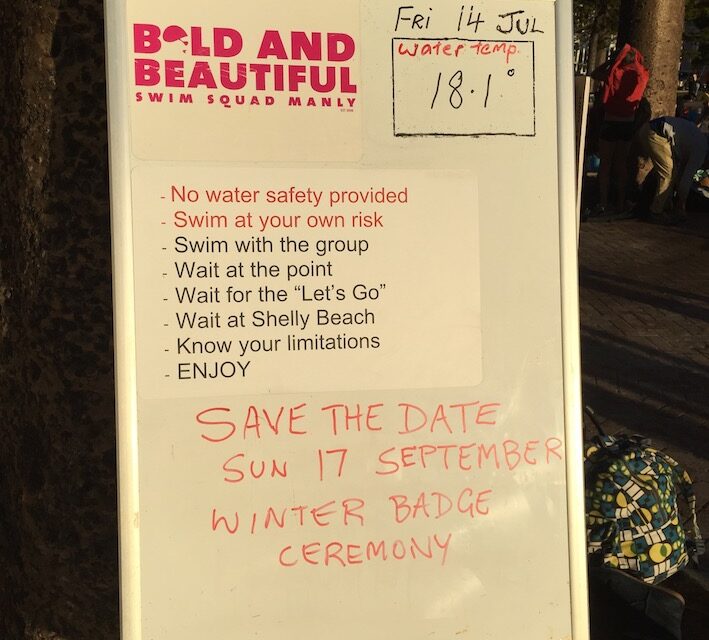 BOLD AND
BEAUTIFUL
SWIM SQUAD MANLY
FRI 14 JUL
water temp.
18.1°
- No water safety provided
- Swim at your own risk
- Swim with the group
- Wait at the point
- Wait for the “Let’s Go”
- Wait at Shelly Beach
- Know your limitations
- ENJOY
SAVE THE DATE
SUN 17 SEPTEMBER
WINTER BADGE
CEREMONY